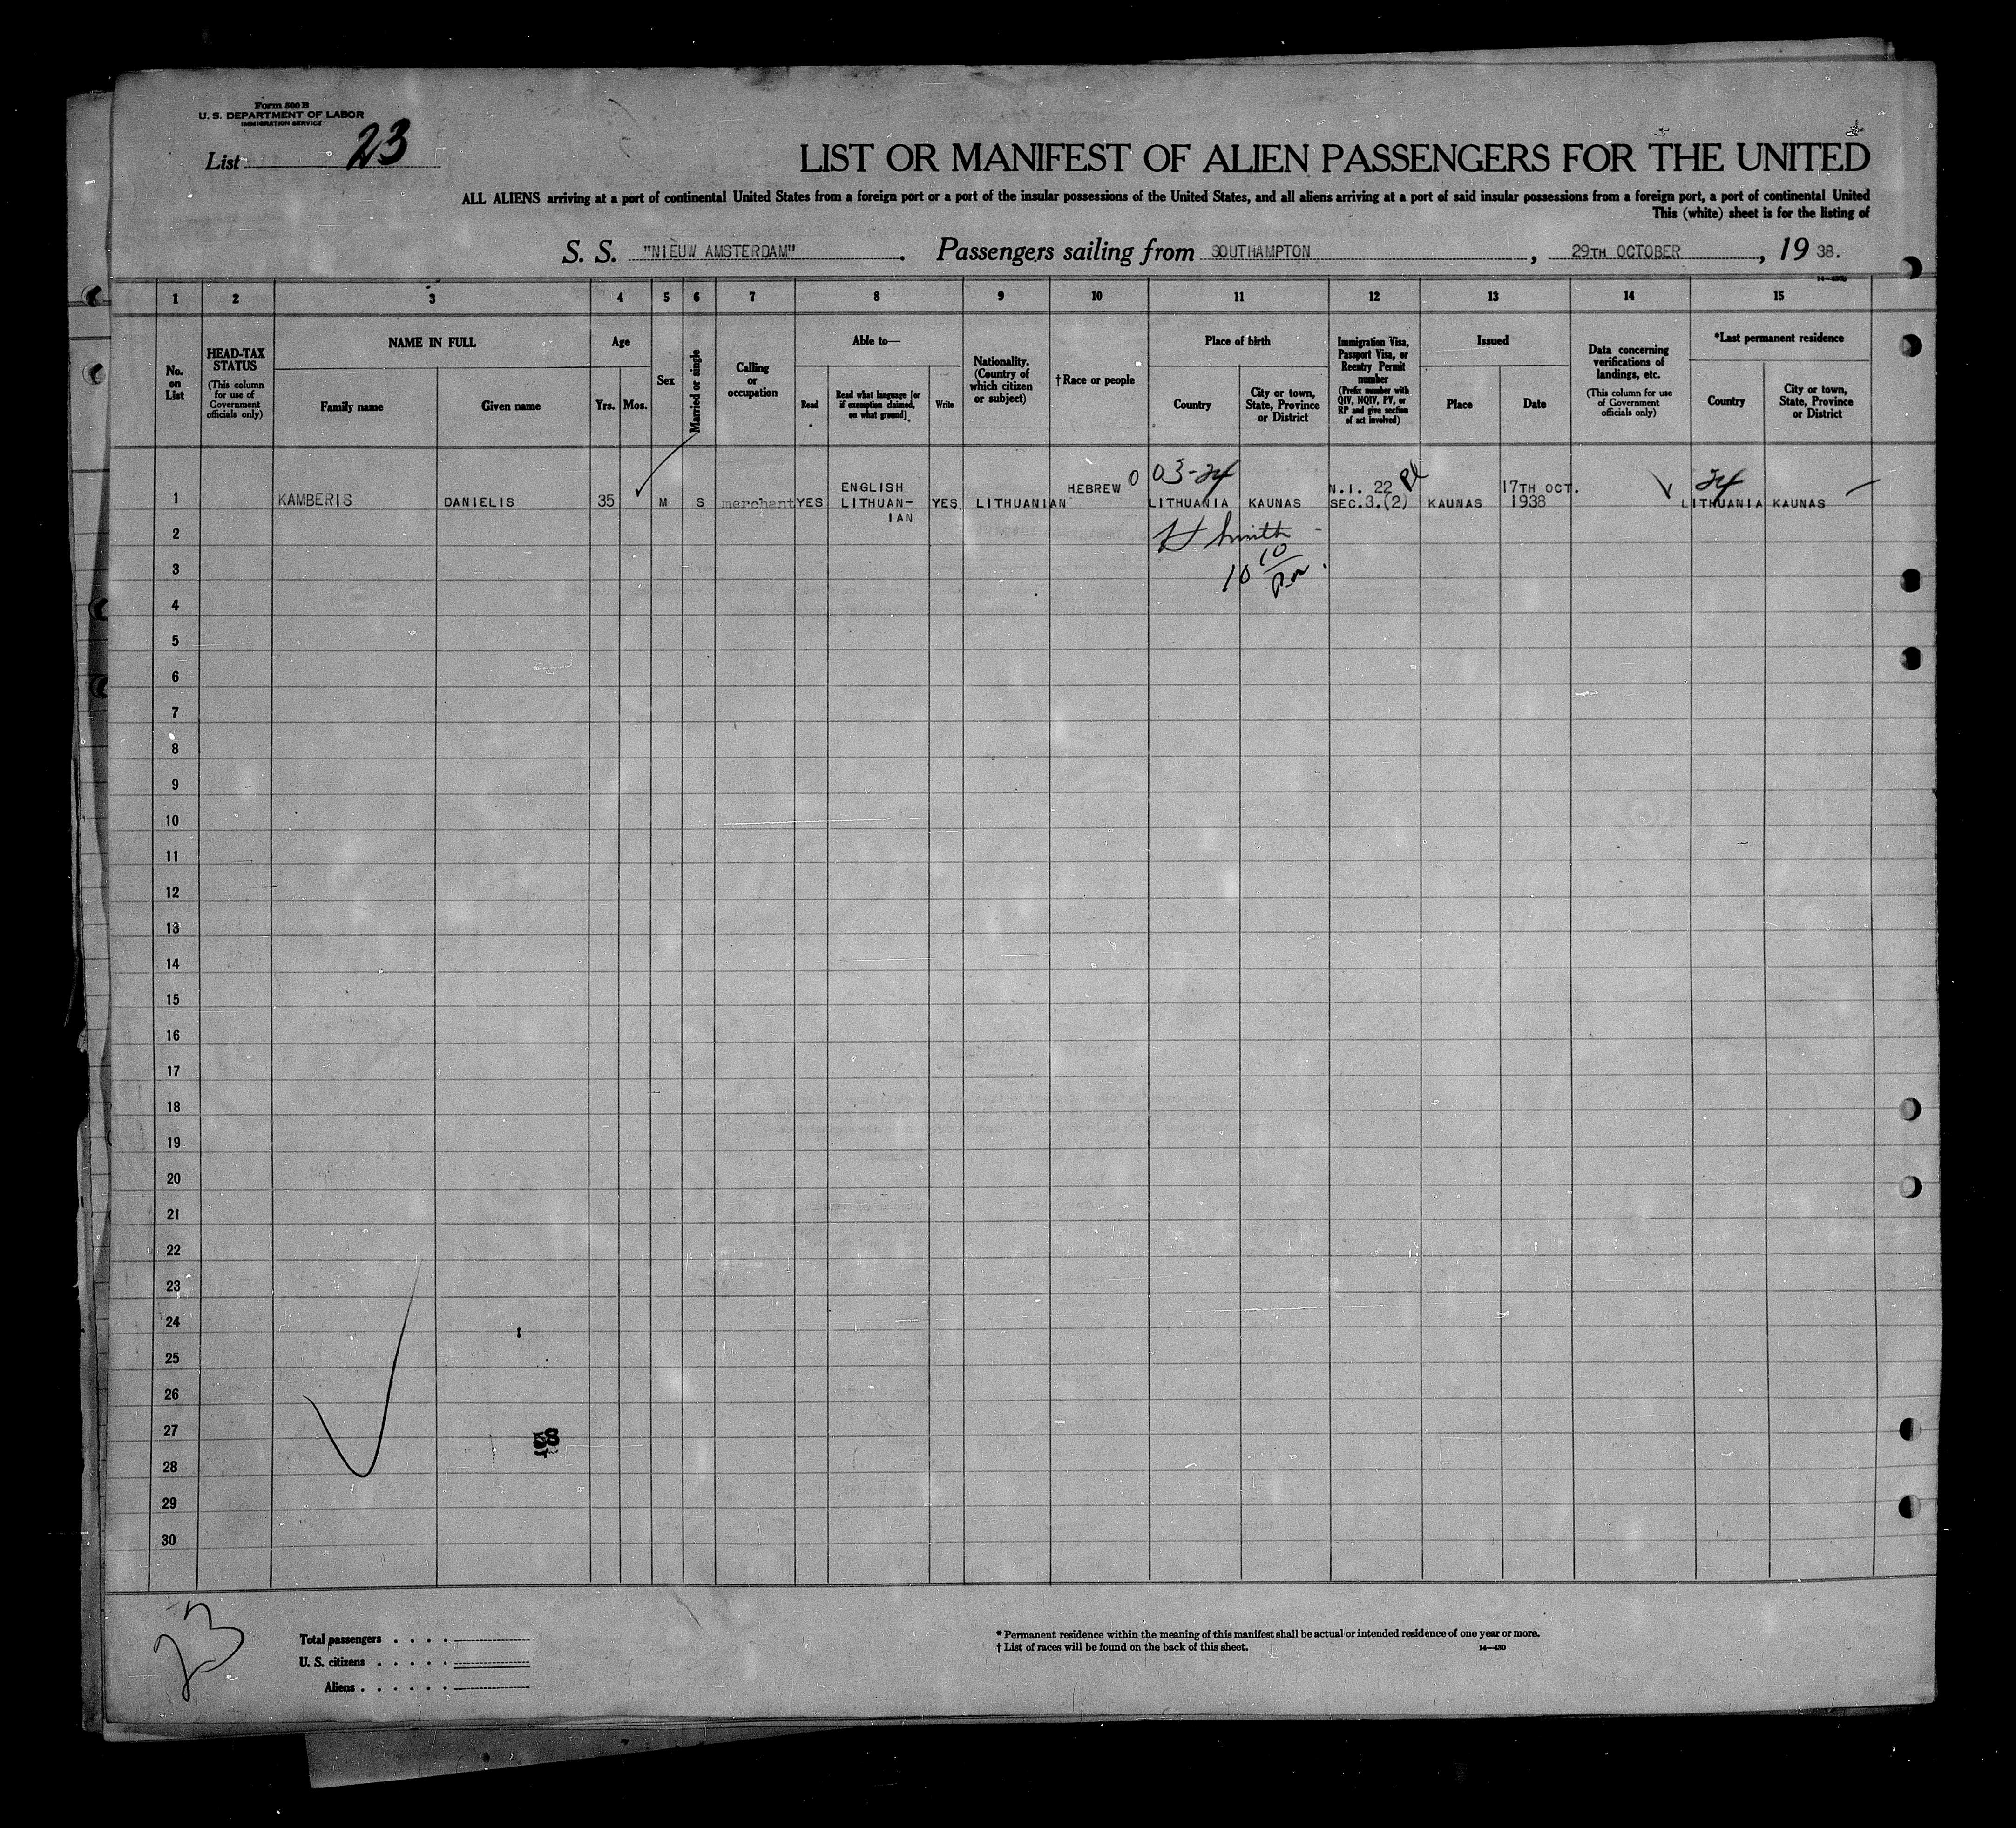 Form 500 B
U. S. DEPARTMENT OF LABOR
IMMIGRATION SERVICE
List 23
LIST OR MANIFEST OF ALIEN PASSENGERS FOR THE UNITED
ALL ALIENS arriving at a port of continental United States from a foreign port or a port of the insular possessions of the United States, and all aliens arriving at a port of said insular possessions from a foreign port, a port of continental United
This (white) sheet is for the listing of
S. S. "NIEUW AMSTERDAM". Passengers sailing from SOUTHAMPTON, 29TH OCTOBER, 19 38.
1 2 3 4 5 6 7 8 9 10 11 12 13 14 15
No. on List
HEAD-TAX STATUS
(This column for use of Government officials only)
NAME IN FULL
Family name
Given name
Age
Yrs. Mos.
Sex
Married or single
Calling or occupation
Able to—
Read
Read what language [or if exemption claimed, on what ground]
Write
Nationality. (Country of which citizen or subject)
†Race or people
Place of birth
Country
City or town, State, Province or District
Immigration Visa, Passport Visa, or Reentry Permit number
(Prefix number with QIV, NQIV, PV, or RP and give section of act involved)
Issued
Place
Date
Data concerning verifications of landings, etc.
(This column for use of Government officials only)
*Last permanent residence
Country
City or town, State, Province or District
03-24
24
1 KAMBERIS DANIELIS 35 M S merchant YES ENGLISH LITHUAN-IAN YES LITHUANIAN HEBREW LITHUANIA KAUNAS N.I. 22 SEC.3.(2) KAUNAS 17TH OCT. 1938 LITHUANIA KAUNAS
2 H Smith
3 10 10 pm.
4
5
6
7
8
9
10
11
12
13
14
15
16
17
18
19
20
21
22
23
24
25
26
27
28
29
30
23
Total passengers . . . .
U. S. citizens . . . . .
Aliens . . . . . .
* Permanent residence within the meaning of this manifest shall be actual or intended residence of one year or more.
† List of races will be found on the back of this sheet.
14—430